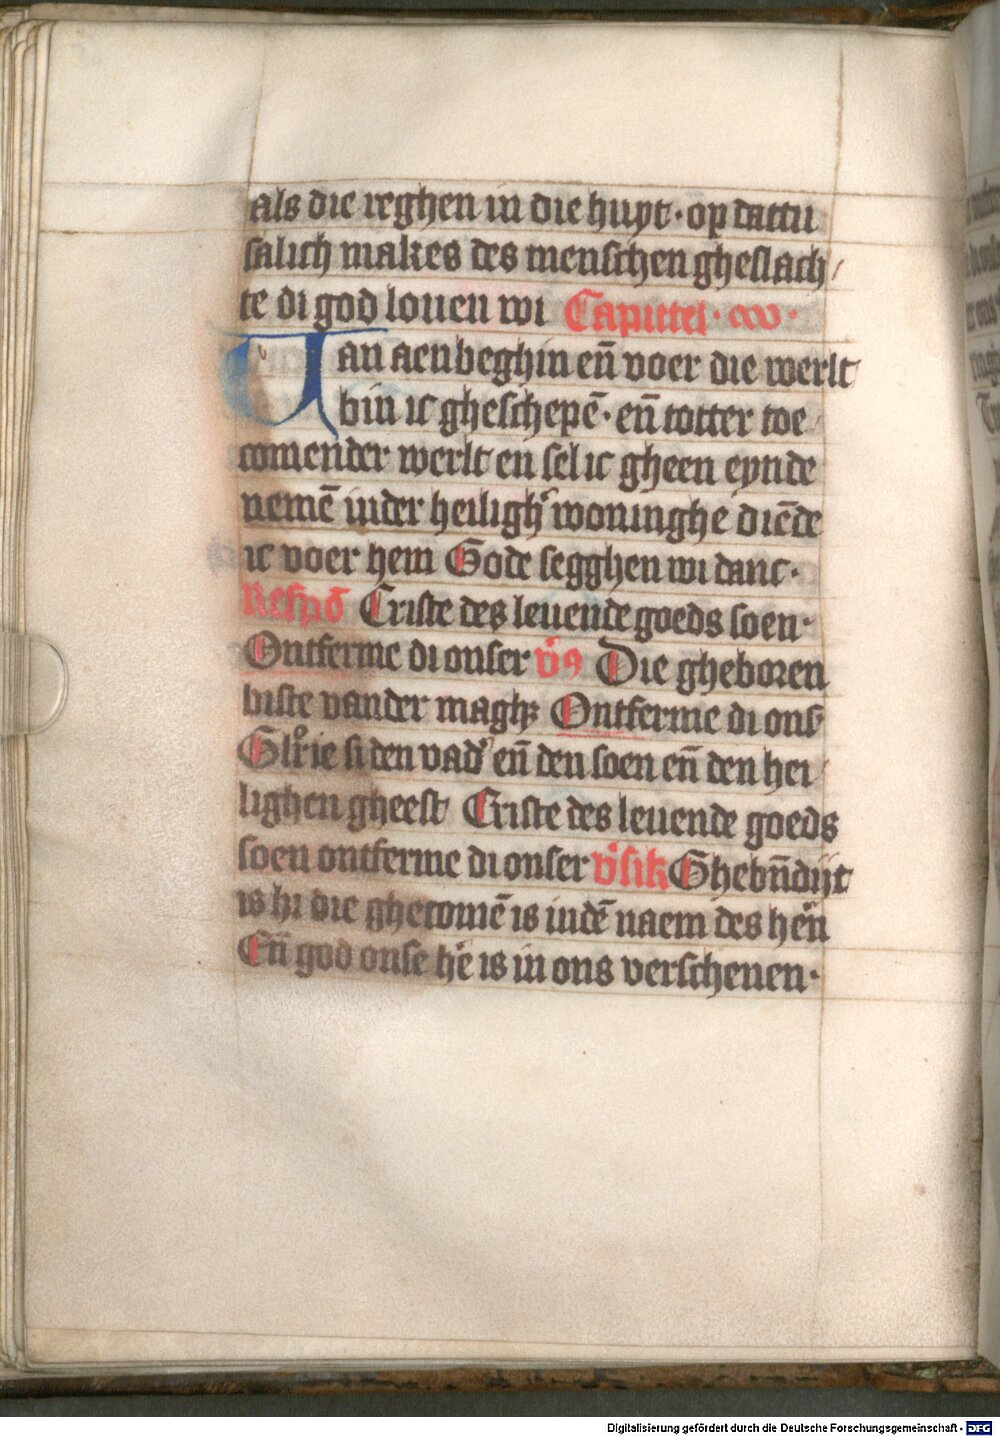 als die reghen in die huyt · op dattu
salich makes des menschen gheslach/
te di god louen wi Capittel ·
Van aenbeghin en̄ voer die werlt
bin ic gheschepē · en̄ totter toe
comender werlt en sel ic gheen eynde
nemē inder heiligh' woninghe diēde
ic voer hem Gode segghen wi danc ·
Respō Criste des leuende goeds soen ·
Ontferme di onser v̄s Die gheboren
biste vander magh Ontferme di ons'
Glorie si den vad' en̄ den soen en̄ den hei/
lighen gheest Criste des leuende goeds
soen ontferme di onser v̄sik Ghebn̄dijt
is hi die ghecomē is indē naem des hēn
En̄ god onse hē is in ons verschenen ·
Digitalisierung gefördert durch die Deutsche Forschungsgemeinschaft - DFG